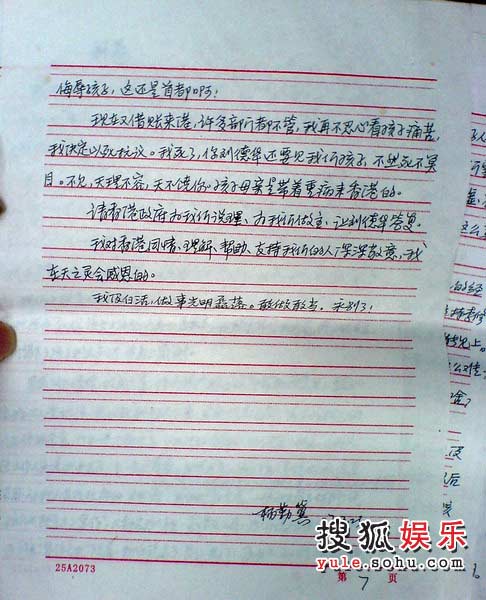 侮辱孩子，这还是首都啊！
现在又借账来港，许多部门都不管，我再不忍心看孩子痛苦，
我决定以死抗议。我死了，你刘德华还要见我们孩子，不然死不冥
目。不见，天理不容，天不饶你。孩子母亲是带着重病来香港的。
请香港政府为我们说理、为我们做主，让刘德华答复。
我对香港同情、理解、帮助、支持我们的人深深敬意，我
在天之灵会感恩的。
我没白活，做事光明磊落。敢做敢当，永别了！
杨勤冀
搜狐娱乐
yule.sohu.com
25A2073
第 7 页